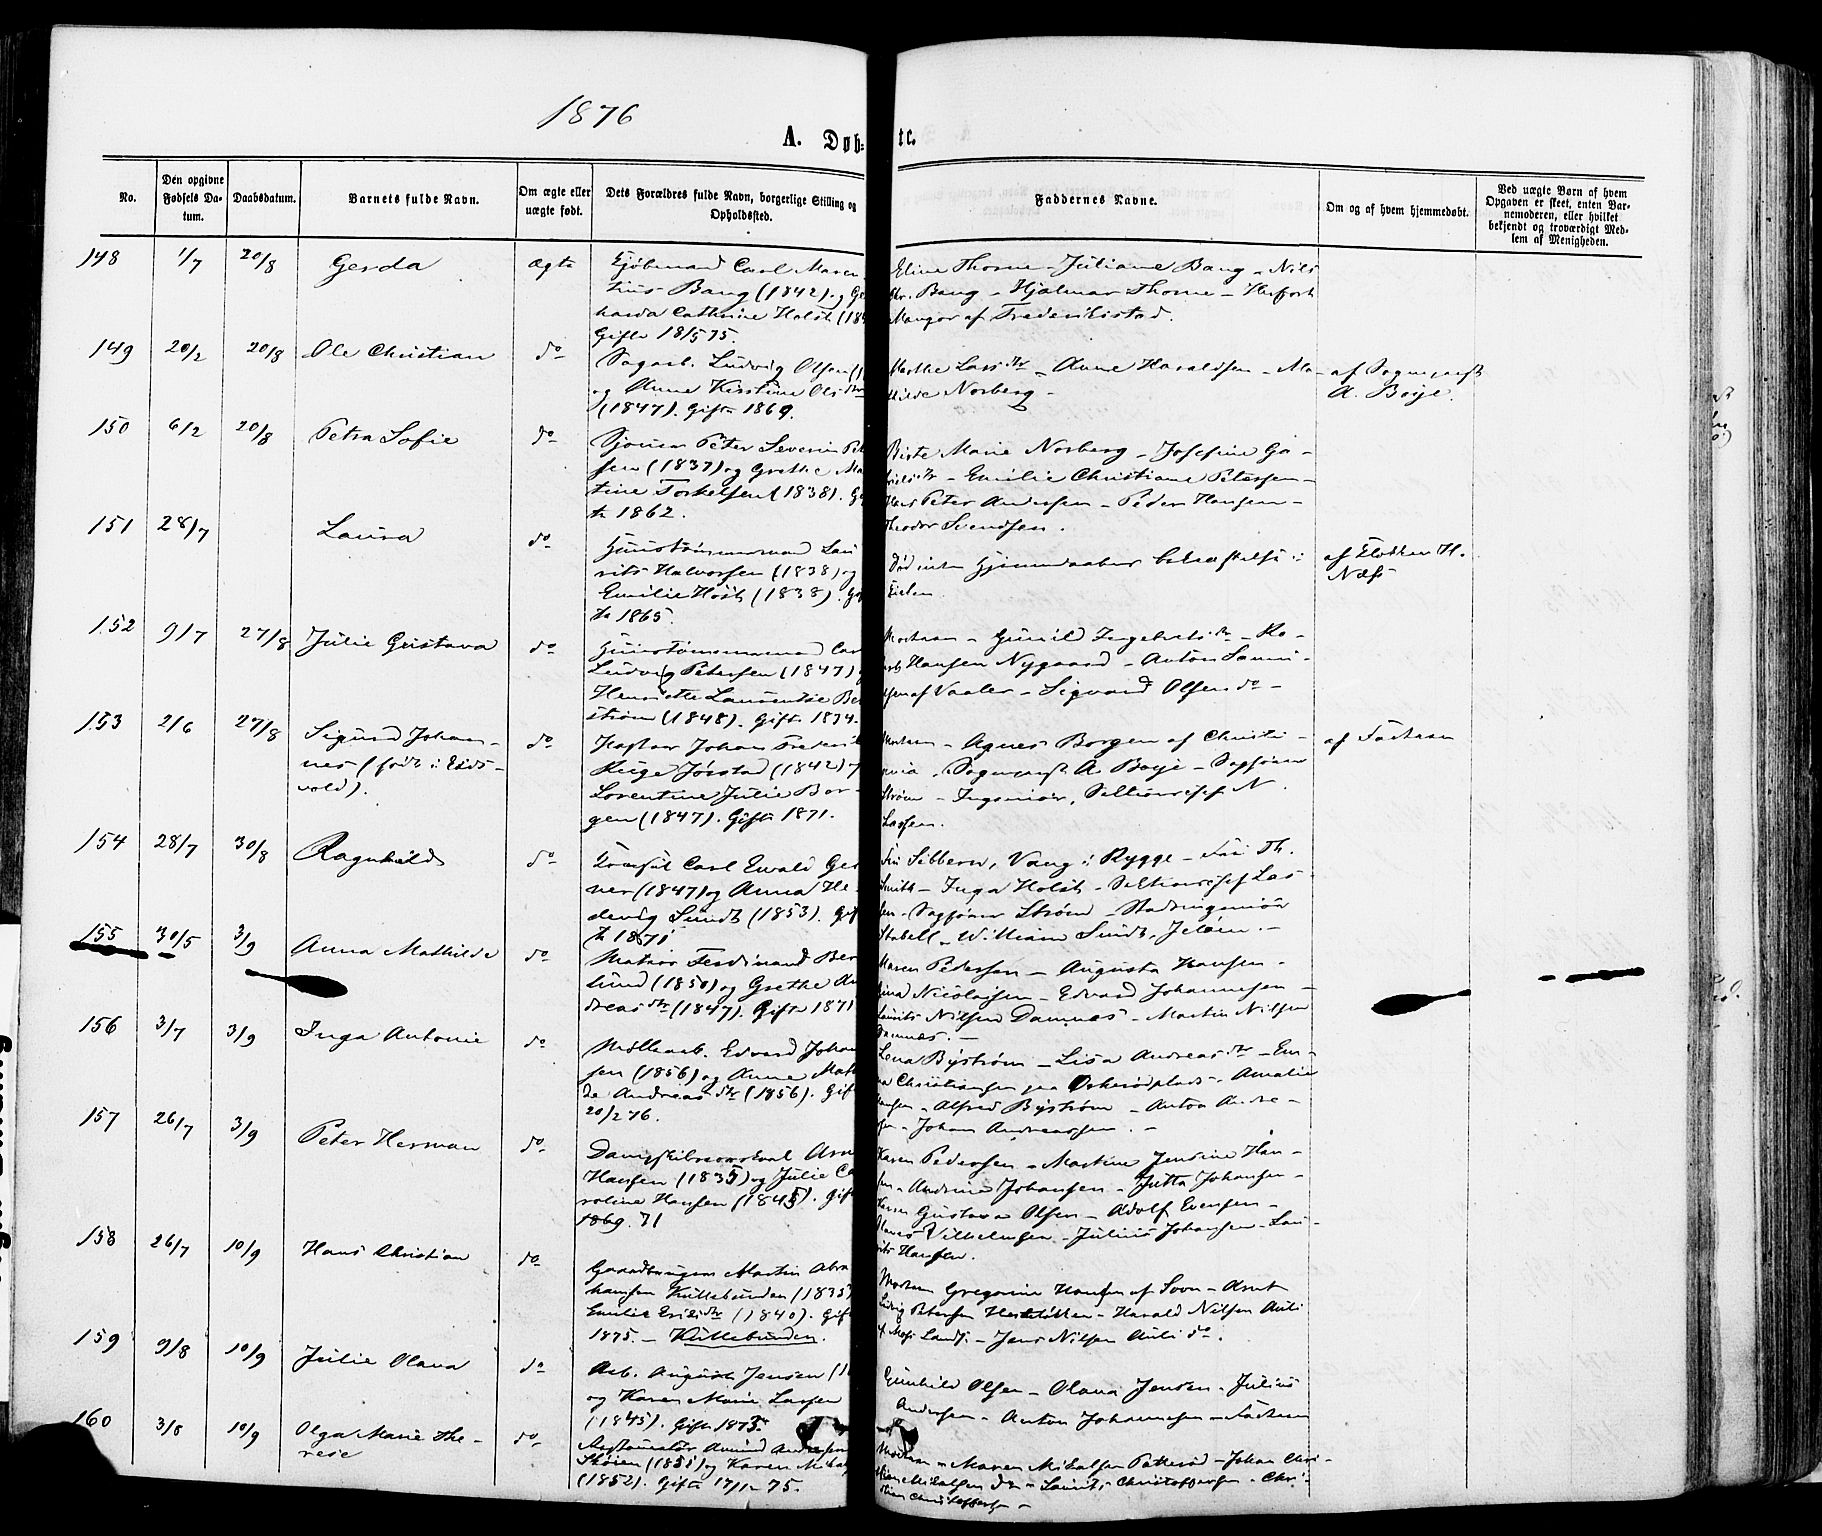 1876
A. Døb-
te.
No.
Den opgivne Fødsels Da-tum.
Daabsdatum.
Barnets fulde Navn.
Om ægte eller uægte født.
Dets Forældres fulde Navn, borgerlige Stilling og Opholdssted.
Faddernes Navne.
Om og af hvem hjemmedøbt.
Ved uægte Børn af hvem Opgaven er skeet, enten Bar-nemoderen, eller hvilket bekjendt og troværdigt Med-lem af Menigheden.
148 1/7 20/8 Gerda ægte
Kjøbmand Carl Maren
tius Bang (1842) og Ge
harda Cathrine Holst (184
Gift 18/5 75.
Eline Thorne - Juliane Bang - Nils
Chr. Bang - Hjalmar Thorne -
Mangor af Frederikstad.
149 20/2 20/8 Ole Christian do
Sagarb. Ludvig Olsen (1
og Anne Kirstine Olsdtr
(1847). Gift 1869.
Marthe Larsdtr - Anne Haraldsen - Ma-
thilde Norberg -
af Sogneprest
A. Boye.
150 6/2 20/8 Petra Sofie do
Sjøman Peter Severin Pet
sen (1837) og Grethe Ma
tine Torkelsen (1838). Gif
te 1862.
Birte Marie Norberg - Josefine Ga-
- Emilie Christiane Petersen -
Hans Peter Andersen - Peder Hansen -
Theodor Svendsen.
151 28/7 Laura do
Huustømmermand Lau
rits Halvorsen (1838) og
Emilie Høst (1838). Gif
te 1865.
Død inden Hjemmedaabens bekræftelse i
Kirken.
af H.
Næss
152 9/7 27/8 Julie Gustava do
Huustømmermand Carl
Ludvig Petersen (1847) o
Henriette Laurentse Be
strøm (1848). Gift 1874.
Moderen - Gunild Ingebretsdtr - Ro-
bert Hansen Nygaard - Anton Lauri-
tsen af Vaaler - Sigvard Olsen do -
153 2/6 27/8 Sigurd Johan-
nes (født i Eids-
vold).
do
Johan Frederik
Ruge Jørstad (1842) og
Lorentine Julie Bor-
gen (1847). Gift 1871.
Moderen - Agnes Borgen af Christi-
ania - Sogneprest A. Boye - Sagfører
Strøm - Ingeniør, Sektionschef N.
Lassen.
af Faderen
154 28/7 30/8 Ragnhild do
Carl Ewald Ger
ner (1847) og Anna He-
devig Sundt (1853). Gif
te 1871
Fru Sibbern, Vang i Rygge - Fru Th.
Smith - Inga Holst - Sektionschef Las-
sen - Sagfører Strøm - Stadsingeniør
Stabell - William Sundt, Jeløen. -
155 30/5 3/9 Anna Mathilde do
Matros Ferdinand Ber
lund (1850) og Grethe An
dreasdtr (1847). Gift 1871
Maren Pedersen - Augusta Hansen -
Gina Nicolaysen - Edvard Johannesen -
Laurits Nilsen Damnæs - Martin Nilsen
Damnæs. -
156 3/7 3/9 Inga Antonie do
Møllearb. Edvard Johan
sen (1856) og Anne Math
de Andreasdtr (1856). Gift
20/2 76.
Lena Byström - Lisa Andreasdtr - Em-
ma Christiansen paa Orkerødplads - Amalie
Hansen - Alfred Byström - Anton Andre-
sen - Johan Andreassen. -
157 26/7 3/9 Peter Herman do
Arne
Hansen (1835) og Julie Ca
roline Hansen (1845). Gift
1869. 71
Karen Pedersen - Martine Jensine Han-
sen - Andrine Johansen - Jutta Johansen -
Karen Gustava Olsen - Adolf Evensen -
Hans Vilhelmsen - Julius Johansen - Lau-
rits Hansen.
158 26/7 10/9 Hans Christian do
Gaardbruger Martin Abra
hamsen Kullebunden (1835)
Emilie Eriksdtr (1840). Gift
1875. - Kullebunden.
Moderen Gregorine Hansen af Soon - Arnt
Ludvig Petersen - Harald Nilsen Auli
af Moss Landss. - Jens Nilsen Auli do. -
159 9/8 10/9 Julie Olava do
Arb. August Jensen (1
og Karen Marie Larsen
(1845). Gift 1873.
Gunhild Olsen - Olava Jensen - Julius
Andersen - Anton Johannesen - Faderen
160 3/8 10/9 Olga Marie The-
rese
do
Restauratør Amund Andersen
Skøien (1851) og Karen Mikals
(1852). Gift 17/12 75.
Moderen - Maren Mikalsen Patterød - Johan Chri-
stian Mikalsen do - Laurits Christoffersen - Chri-
stian Christoffersen -